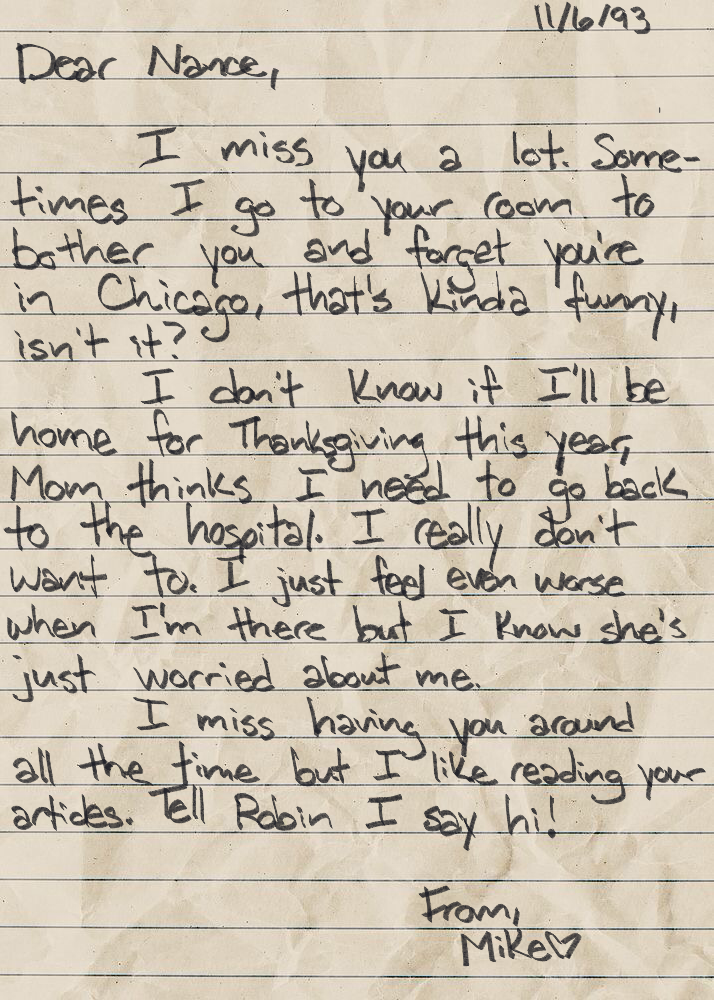 11/6/93
Dear Nance,
I miss you a lot. Some-
times I go to your room to
bother you and forget you're
in Chicago, that's kinda funny,
isn't it?
I don't know if I'll be
home for Thanksgiving this year,
Mom thinks I need to go back
to the hospital. I really don't
want to. I just feel even worse
when I'm there but I know she's
just worried about me.
I miss having you around
all the time but I like reading your
articles. Tell Robin I say hi!
From,
Mike♡